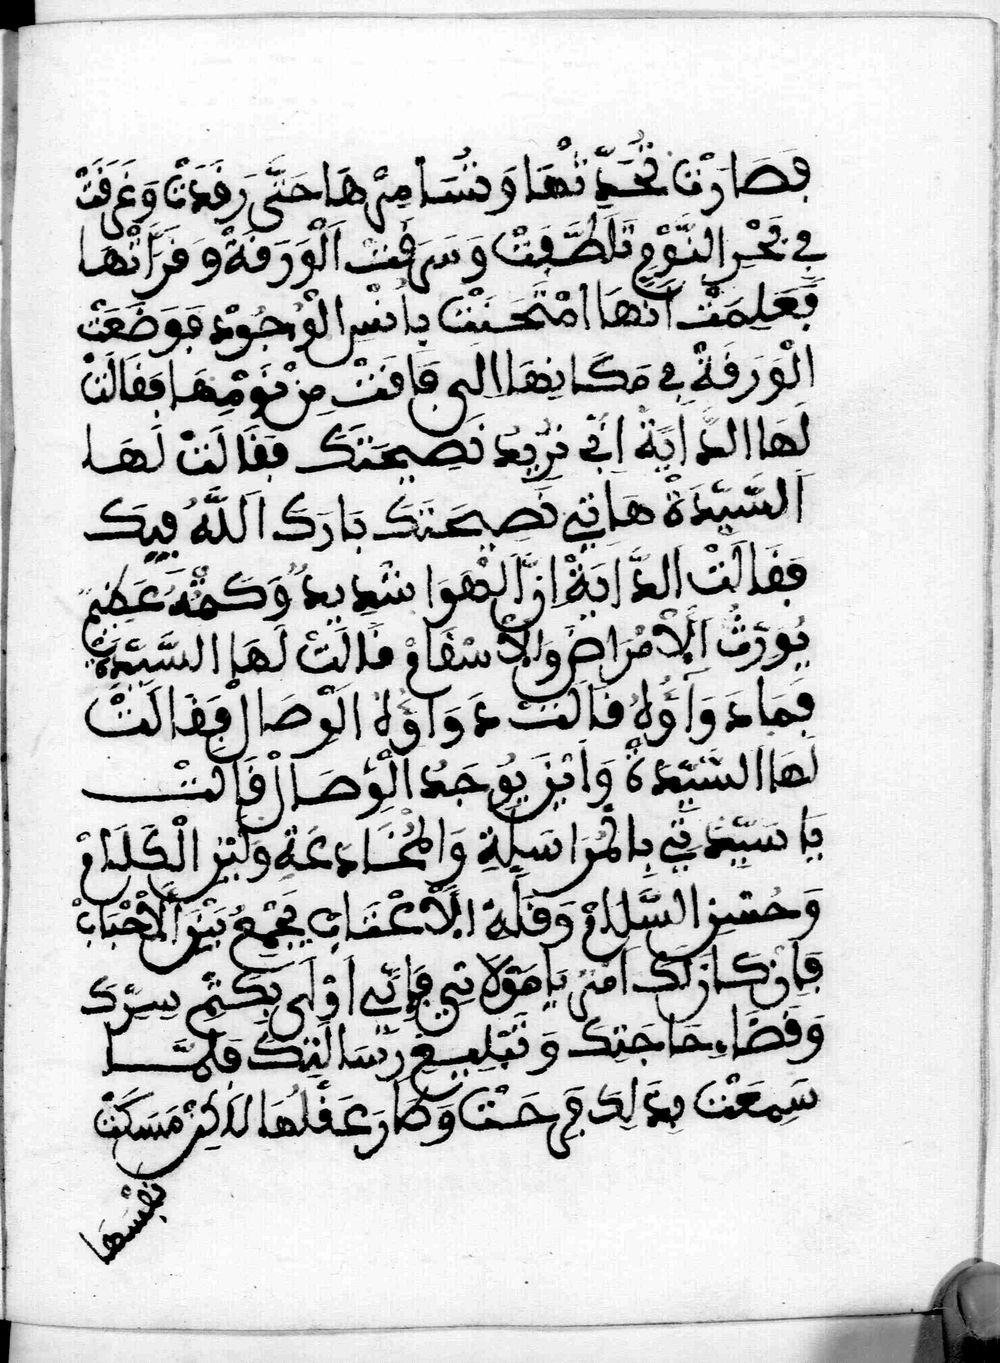 فَصَارَتْ تُحَدِّثُهَا وَتُسَامِرُهَا حَتَّى رَقَدَتْ وَغَرِقَتْ
فِي بَحْرِ النَّوْمِ تَلَطَّفَتْ وَسَرَقَتْ الْوَرَقَةْ وَقَرَأَتْهَا
فَعَلِمَتْ أَنَّهَا امْتَحَنَتْ بِأُنْسِ الْوُجُوْدِ فَوَضَعَتْ
الْوَرَقَةْ فِي مَكَانِهَا الى فَاقَتْ مِنْ نَوْمِهَا فَقَالَتْ
لَهَا الدَّايَةْ أَنِّي نُرِيدُ نَصِيحَتَكِ فَقَالَتْ لَهَا
اَلسَّيِّدَةْ هَاتِي نَصِيحَتَكِ بَارَكَ اَللَّهُ فِيكِ
فَقَالَتْ الدَّايَةْ اِنَّ الْهَوَا شَدِيدٌ وَكَتْمُهُ عَظِيمٌ
يُورَثُ اَلْأَمْرَاضَ وَالْأَسْقَامْ قَالَتْ لَهَا السَّيِّدَةْ
فَمَا دَوَآؤُهُ قَالَتْ دَوَآؤُهُ الْوِصَالْ فَقَالَتْ
لَهَا السَّيِّدَةْ وَايْنَ يُوجَدُ الْوِصَالْ قَالَتْ
يَا سَيِّدَتِي بِالْمُرَاسَلَةِ وَالْمُخَادَعَةِ وَلَيْنِ الْكَلَامْ
وَحُسْنِ السَّلَامْ وَقِلَّةْ الْأَعْتَابْ يَجْمَعُ بَيْنَ الْأَحْبَابْ
فَإِنْ كَانَ لَكِ امْرٌ يَا مَوْلَاتِي فَإِنِّي اَوْلَى بِكَتْمِ سِرِّكِ
وَقَضَاءِ حَاجَتِكِ وَتَبْلِيغِ رِسَالَتِكِ فَلَمَّا
سَمِعَتْ بِذَلِكَ فَرِحَتْ وَطَارَ عَقْلُهَا لَاكِنْ مَسَكَتْ
نَفْسَهَا